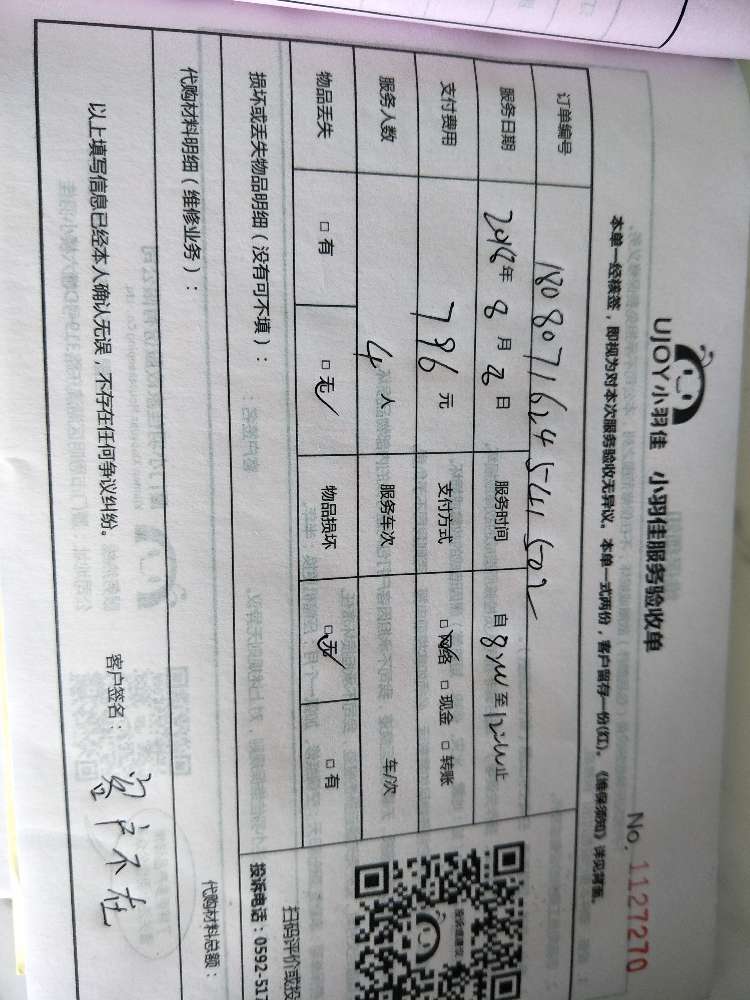 UJOY小羽佳 小羽佳服务验收单
No. 1127270
本单一经核签，即视为对本次服务验收无异议。本单一式两份，客户留存一份(红)。《维保须知》详见背面。
订单编号 180807162454150
服务日期 2018年 8 月 日 服务时间 自 至 止
支付费用 796 元 支付方式 □网络 □现金 □转账
服务人数 4 人 服务车次 车/次
物品丢失 □有 □无 物品损坏 □无 □有
损坏或丢失物品明细（没有可不填）：
扫码评价或投
投诉电话：0592-517
代购材料明细（维修业务）：
代购材料总额：
以上填写信息已经本人确认无误，不存在任何争议纠纷。 客户签名： 客户不在